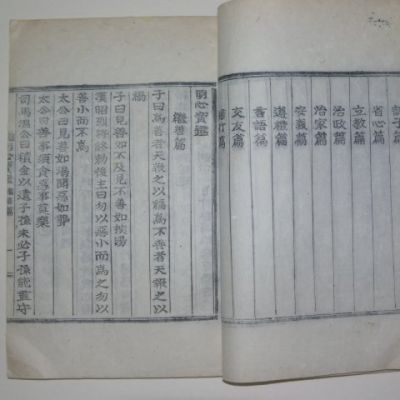 訓子篇
省心篇
立教篇
治政篇
治家篇
安義篇
遵禮篇
言語篇
交友篇
婦行篇
明心寶鑑
繼善篇
子曰爲善者天報之以福爲不善者天報之以
禍
子曰見善如不及見不善如探湯
漢昭烈將終勅後主曰勿以惡小而爲之勿以
善小而不爲
太公曰見善如渴聞惡如聾
太公曰善事須貪惡事莫樂
司馬溫公曰積金以遺子孫未必子孫能盡守